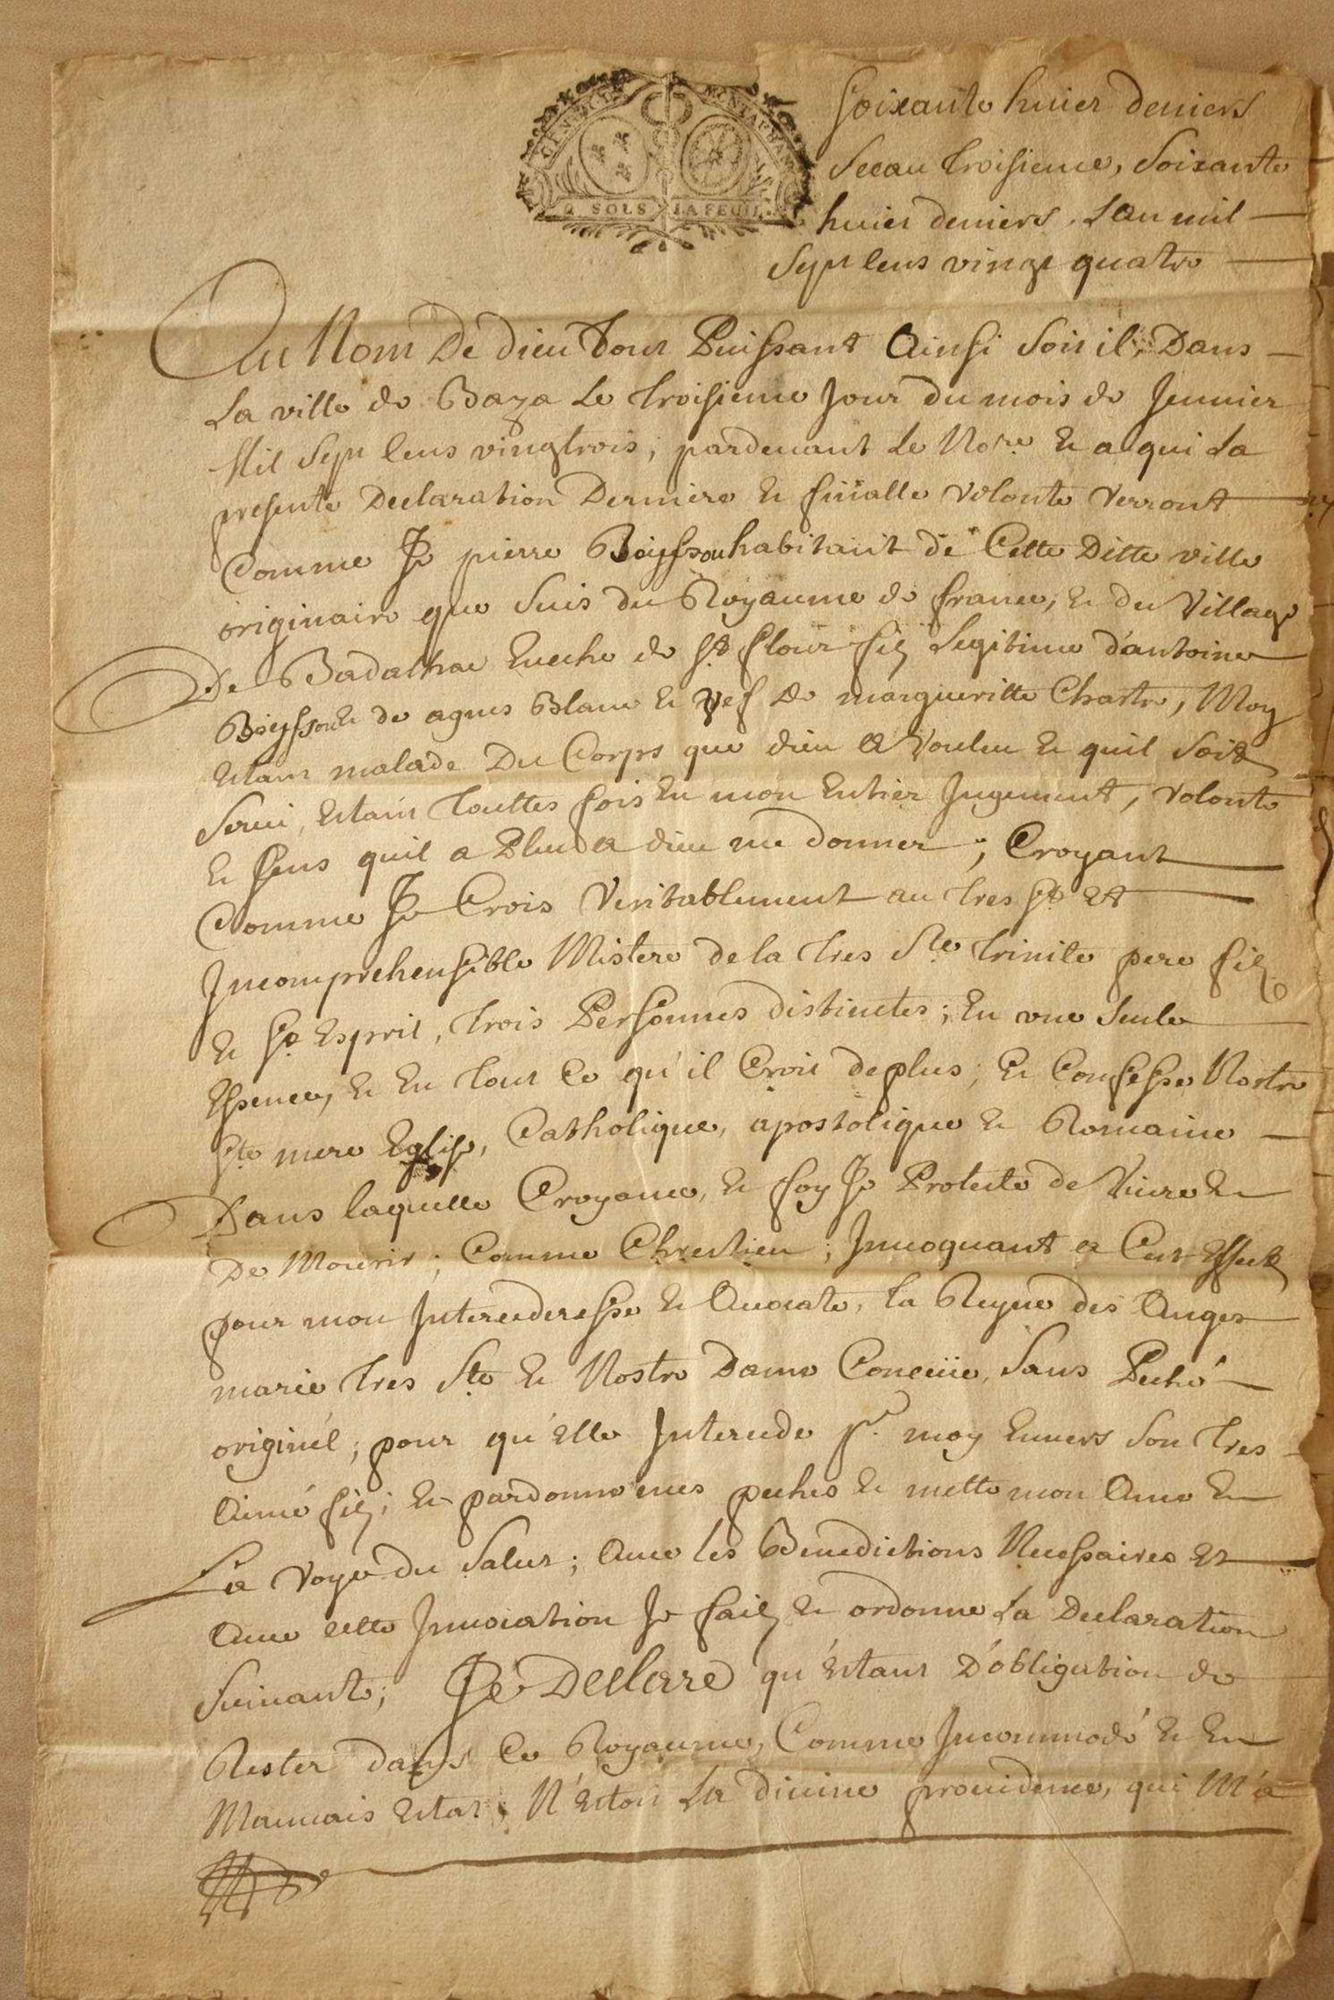 GENERALITE MONTAUBAN
2 SOLS LA FEUIL.
Soixante huict deniers
Sceau troisieme, Soixante
huict deniers, Lan mil
Sept Cens vingt quatre
Au Nom De dieu Tout Puissant Ainsi Soit il, Dans
La ville de Baza Le troisieme Jour du mois de Jenuier
Mil Sept Cens vingtrois, pardeuant Le No.re Et a qui La
presente Declaration Derniere Et finalle Volonte Verront
Comme Je pierre Boyssou habitant de Cette Ditte ville
originaire que Suis du Royaume de france, Et du Village
De Badalhac Eueche de St flour fils Legitime d'antoine
Boyssou Et de agnes Blanc Et vef de margueritte Chastre, Moy
Estant malade Du Corps que dieu a Voulu Et quil Soit
Serui, Estant Touttes fois En mon Entier Jugement, Volonte
Et Sens quil a Plu a dieu me donner, Croyant
Comme Je Crois Veritablement au tres St Et
Incomprehensible Mistere de la tres Ste Trinite pere fils
Et St Esprit, trois Personnes distinctes; En vne Seule
Essence, Et En Tout Ce qu'il Croit de plus, Et Confesse Nostre
Ste mere Eglise, Catholique, apostolique Et Romaine
Dans laquelle Croyance, Et foy Je Proteste de Viure Et
De Mourir, Comme Chrestien; Inuoquant a Cet Effect
pour mon Intercederesse Et Auocate, la Reyne des Anges
marie tres Ste Et Nostre Dame Conceüe, Sans Peché
originél; pour qu'Elle Intercede pr. moy Enuers Son tres
Aimé fils; Et pardonne mes peches Et mette mon Ame En
La Voye du Salut; Auec les Benedictions Necessaires Et
Auec cette Inuocation Je fais Et ordonne La Declaration
Suiuante; Je Declare qu'Estant D'obligation de
Rester dans Ce Royaume, Comme Incommodé Et En
Mauuais Estat, N'Estoit La diuine prouidence, qui M'a